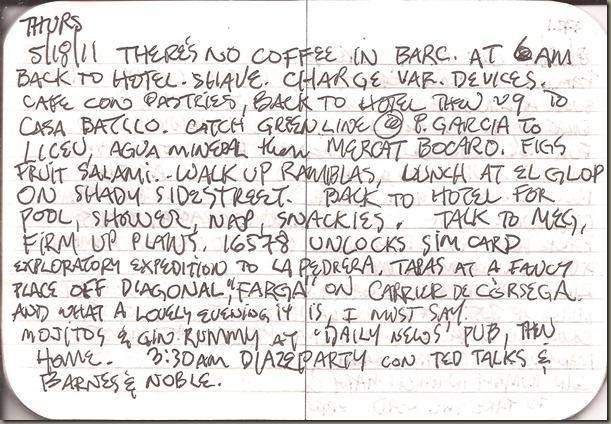 THURS
5/18/11 THERE'S NO COFFEE IN BARC. AT 6AM
BACK TO HOTEL. SHAVE. CHARGE VAR. DEVICES.
CAFE CON PASTRIES, BACK TO HOTEL THEN V9 TO
CASA BATLLO. CATCH GREEN LINE @ P. GARCIA TO
LICEU, AGUA MINERAL then MERCAT BOCARO. FIGS
FRUIT SALAMI. WALK UP RAMBLAS, LUNCH AT EL GLOP
ON SHADY SIDESTREET. BACK TO HOTEL FOR
POOL, SHOWER, NAP, SNACKIES. TALK TO MEG,
FIRM UP PLANS. 16578 UNLOCKS SIM CARD
EXPLORATORY EXPEDITION TO LA PEDRERA, TAPAS AT A FANCY
PLACE OFF DIAGONAL, "FARGA" ON CARRIER DE CÒRSEGA.
AND WHAT A LOVELY EVENING IT IS, I MUST SAY.
MOJITOS & GIN RUMMY AT "DAILY NEWS" PUB, THEN
HOME. 3:30AM PARTY CON TED TALKS &
BARNES & NOBLE.